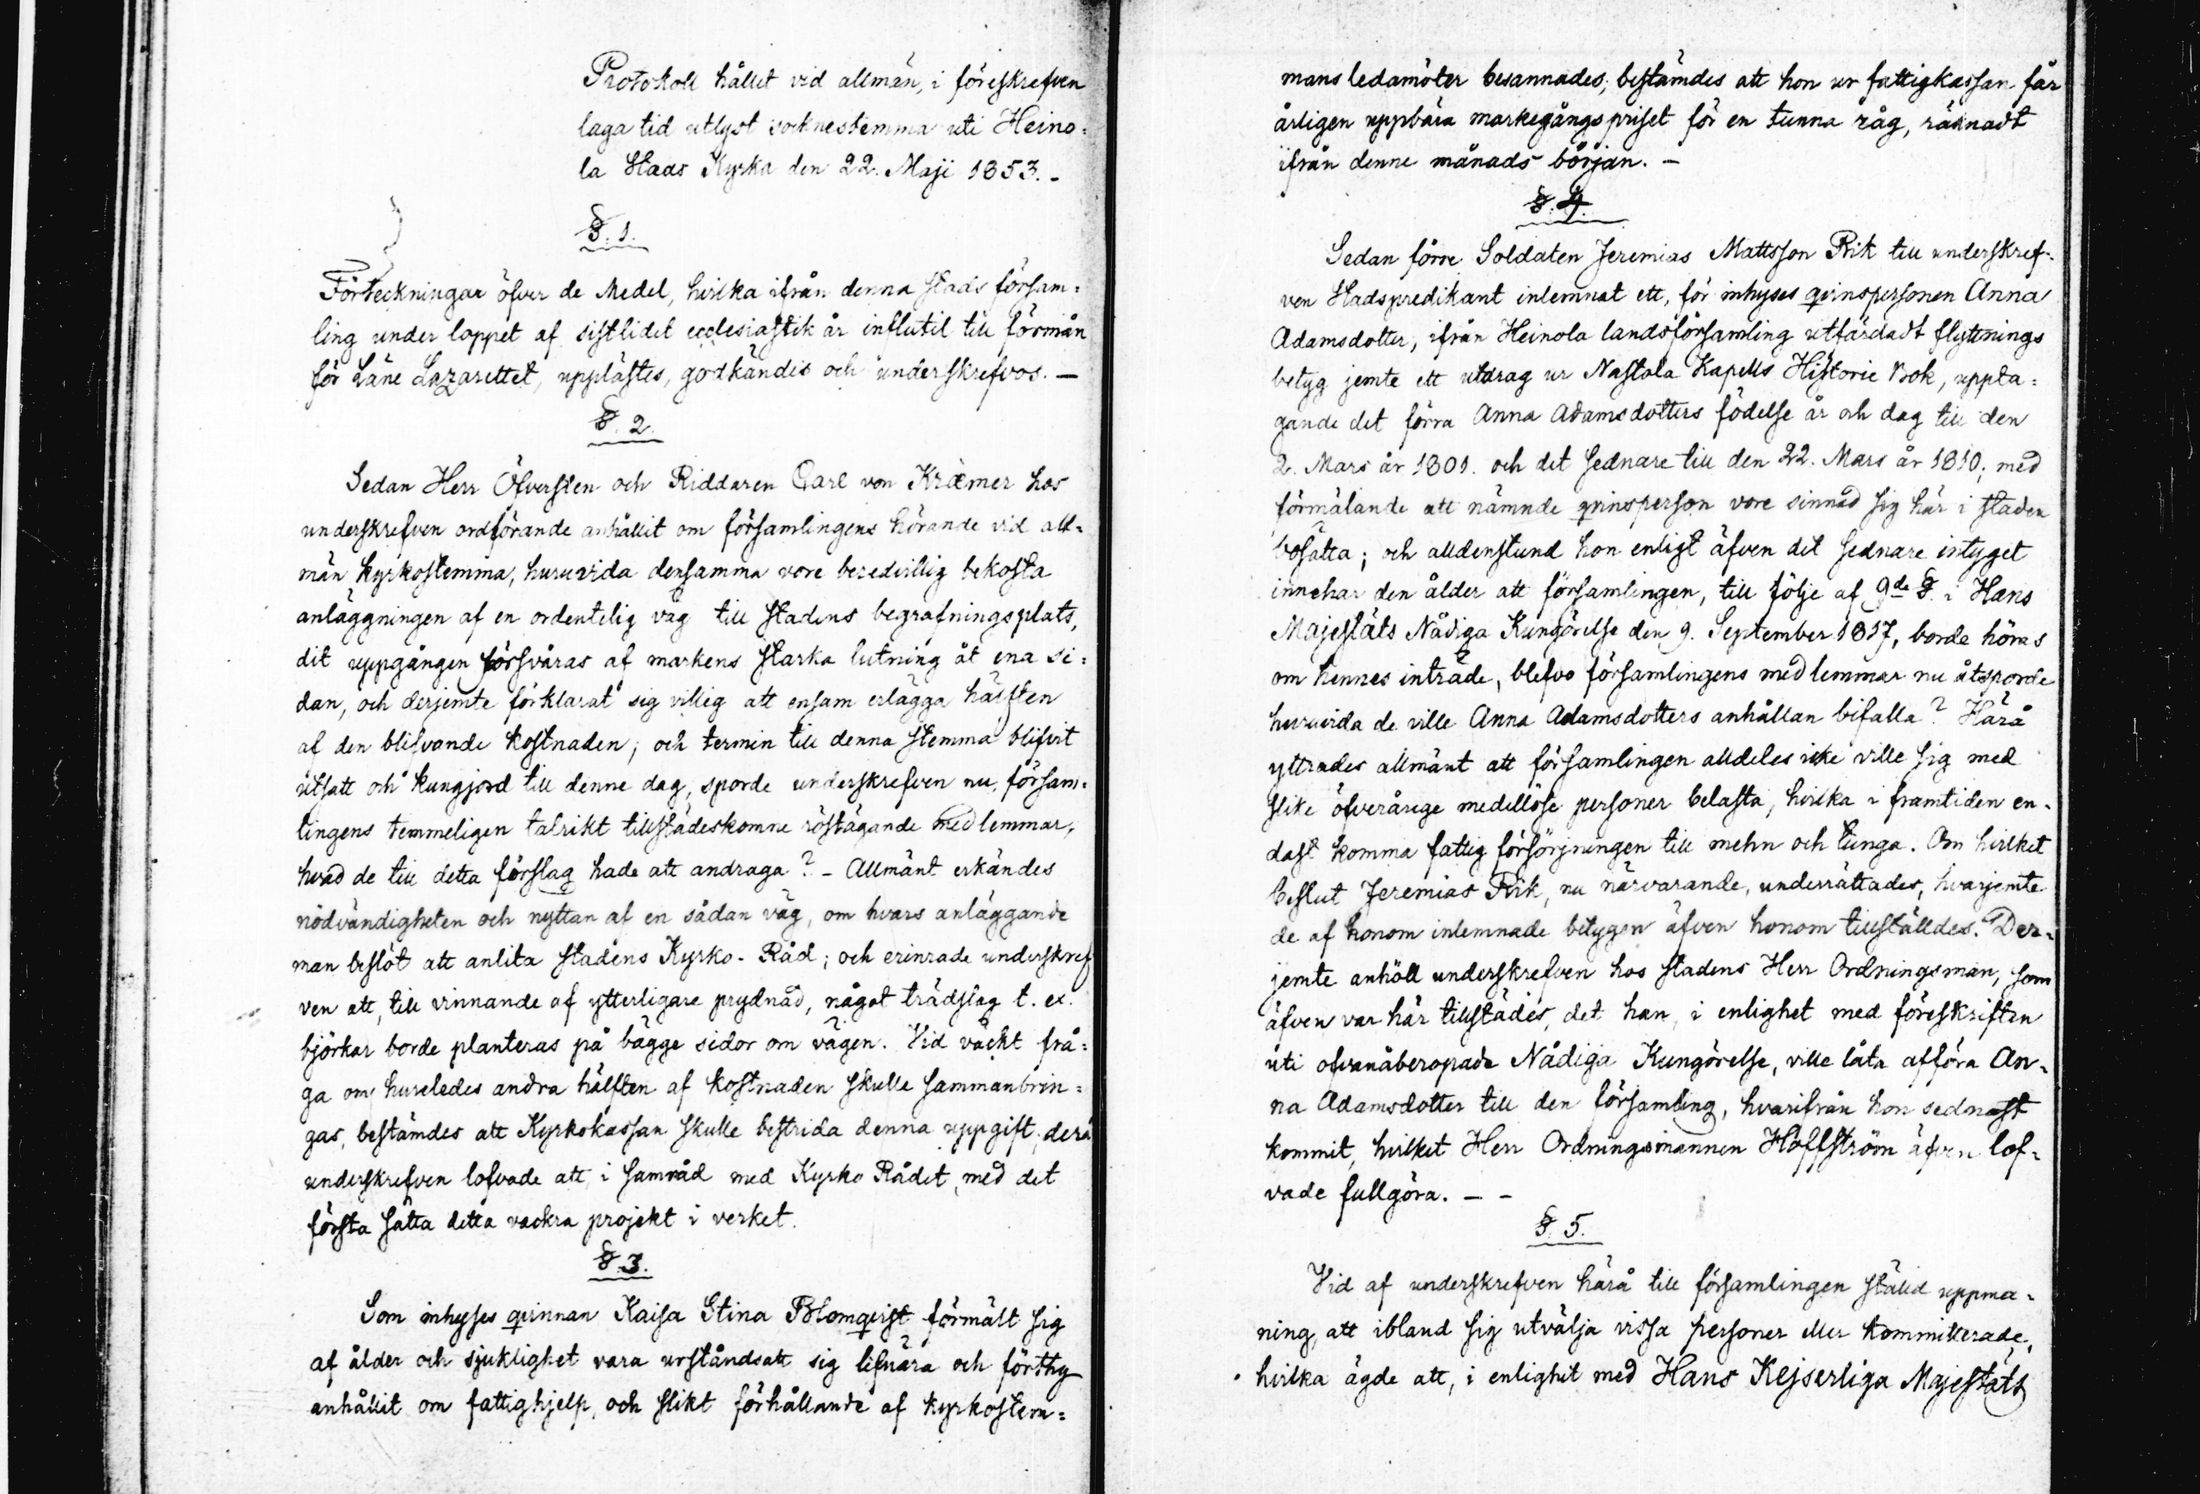 Protokoll hållet vid allmän, i föreskrefven
laga tid utlyst socknestemma uti Heino=
la Stads Kyrka den 22. Maji 1853. -
§. 1.
Förteckningar öfver de Medel, hvilka ifrån denna stads försam=
ling under loppet af sistlidet ecclesiastik år influtit till förmån
för Läne Lazarettet, upplästes, godkändes och underskrefvos. -
§. 2.
Sedan Herr Öfversten och Riddaren Carl von Kræmer hos
underskrefven ordförande anhållit om församlingens hörande vid all=
män kyrkostemma, huruvida densamma vore beredvillig bekosta
anläggningen af en ordentelig väg till stadens begrafningsplats,
dit uppgången försvåras af markens starka lutning åt ena si=
dan, och derjemte förklarat sig villig att ensam erlägga hälften
af den blifvande kostnaden; och termin till denna stemma blifvit
utsatt och kungjord till denne dag, sporde underskrefven nu försam=
lingens temmeligen talrikt tillstädeskomne röstägande medlemmar,
hvad de till detta förslag hade att andraga? - Allmänt erkändes
nödvändigheten och nyttan af en sådan väg, om hvars anläggande
man beslöt att anlita stadens Kyrko-Råd; och erinrade underskref
ven att, till vinnande af ytterligare prydnad, något trädslag t. ex.
björkar borde planteras på bägge sidor om vägen. Vid väckt frå=
ga om huruledes andra hälften af kostnaden skulle sammanbrin=
gas, bestämdes att Kyrkokassan skulle bestrida denna uppgift, derå
underskrefven lofvade att i samråd med Kyrko Rådet, med det
första sätta detta vackra projekt i verket.
§. 3.
Som inhyses qvinnan Kaisa Stina Blomqvist förmält sig
af ålder och sjuklighet vara urståndsatt sig lifnära och förthy
anhållit om fattighjelp, och slikt förhållande af kyrkostem=
mans ledamöter besannades; bestämdes att hon ur fattigkassan får
årligen uppbära markegångspriset för en tunna råg, räknadt
ifrån denne månads början. -
§. 4.
Sedan förre Soldaten Jeremias Mattsson Rik till underskref=
ven Stadspredikant inlemnat ett, för inhyses qvinspersonen Anna
Adamsdotter, ifrån Heinola landsförsamling utfärdadt flyttnings
betyg jemte ett utdrag ur Nastola Kapells Historie Bok, uppta=
gande det förra Anna Adamsdotters födelse år och dag till den
2. Mars år 1801. och det sednare till den 22. Mars år 1810; med
förmälande att nämnde qvinsperson vore sinnad sig här i staden
bosätta; och alldenstund hon enligt äfven det sednare intyget
innehar den ålder att församlingen, till följe af 9de §. i Hans
Majestäts Nådiga Kungörelse den 9. September 1817, borde höras
om hennes inträde, blefvo församlingens medlemmar nu åtsporde
huruvida de ville Anna Adamsdotters anhållan bifalla? Härå
yttrades allmänt att församlingen alldeles icke ville sig med
slike öfverårige medellöse personer belasta, hvilka i framtiden en=
dast komma fattig försörjningen till mehn och tunga. Om hvilket
beslut Jeremias Rik, nu närvarande, underrättades, hvarjemte
de af honom inlemnade betygen äfven honom tillställdes. Der=
jemte anhöll underskrefven hos stadens Herr Ordningsman, som
äfven var här tillstädes, det han, i enlighet med föreskriften
uti ofvanåberopade Nådiga Kungörelse, ville låta afföra An=
na Adamsdotter till den församling, hvarifrån hon sednast
kommit, hvilket Herr Ordningsmannen Hoffström äfven lof=
vade fullgöra. - -
§. 5.
Vid af underskrefven härå till församlingen ställd uppma=
ning, att ibland sig utvälja vissa personer eller kommitterade,
hvilka ägde att, i enlighet med Hans Kejserliga Majestäts